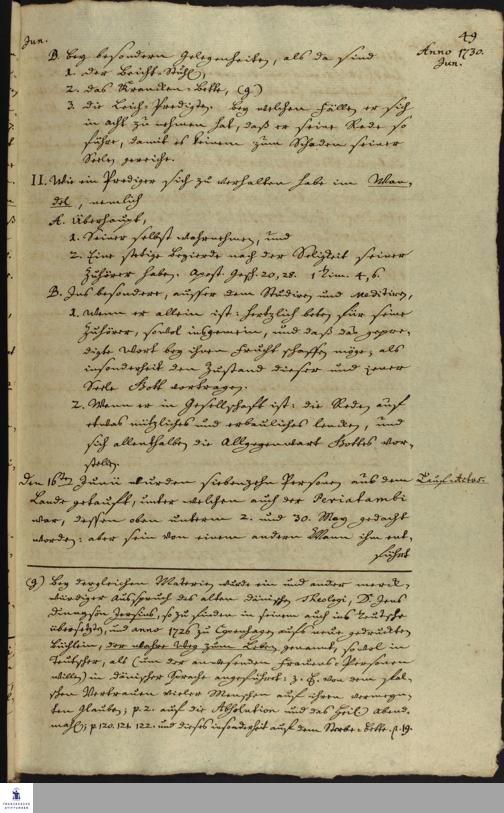 49
Jun.
Anno 1730.
Jun.
B. bey besondern Gelegenheiten, als da sind
1. der Beicht-Stuhl,
2. das Krancken-Bette, (9)
3. die Leich-Predigten. Bey welchen Fällen er sich
in acht zu nehmen hat, daß er seine Rede so
führe, damit es keinem zum Schaden seiner
Seelen gereiche.
II. Wie ein Prediger sich zu verhalten habe im Wan-
del, nemlich
A. Überhaupt,
1. Seiner selbst wahrnehmen, und
2. Eine stetige Begierde nach der Seligkeit seiner
Zuhörer haben. Apost. Gesch. 20, 28. 1 Tim. 4, 6.
B. Ins besondere, ausser dem Studiren und Meditiren,
1. Wenn er allein ist: hertzlich beten für seine
Zuhörer, sowol insgemein, und daß das gepre-
digte Wort bey ihnen Frucht schaffen möge, als
insonderheit den Zustand dieser und jener
Seele Gott vortragen.
2. Wenn er in Gesellschaft ist: die Reden auf
etwas nützliches und erbauliches lencken, und
sich allenthalben die Allgegenwart Gottes vor-
stellen.
Den 16ten Junii wurden siebenzehn Personen aus dem
Tauf-Actus.
Lande getauft, unter welchen auch der Periatambi
war, dessen oben unterm 2. und 30. May gedacht
worden: aber sein von einem andern Mann ihm ent-
führt
(9) Bey dergleichen Materien wurde ein und ander merck-
würdiger Ausspruch des alten dänischen Theologi, D. Jens
Dinnysøn Jersins, so zu finden in seinem auch ins Teutsche
übersetzten, und anno 1726 zu Copenhagen aufs neue gedruckten
Büchlein, der wahre Weg zum Leben genannt, sowol in
Teutscher, als (um der anwesenden Frauens-Personen
willen) in dänischer Sprache angeführet: z. E. von dem fal-
schen Vertrauen vieler Menschen auf ihren vermeyn-
ten Glauben; p. 2. auf die Absolution und das Heil. Abend-
mahl; p. 120. 121. 122. und dieses insonderheit auf dem Sterbe-Bette. p. 19.
FRANCKESCHE
STIFTUNGEN